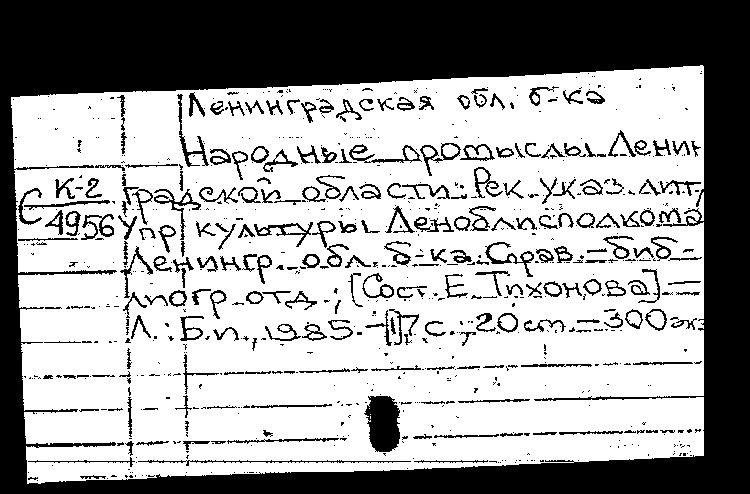 Ленинградская обл. б-ка
Народные промыслы Ленин
К-2
С
4956
градской области: Рек. указ. лит.
Упр. культуры Леноблисполкома
Ленингр. обл. б-ка. Справ.-биб-
лиогр. отд.; [Сост. Е. Тихонова] —
Л.: Б.и., 1985. — 17 с.; 20 см. — 300 экз